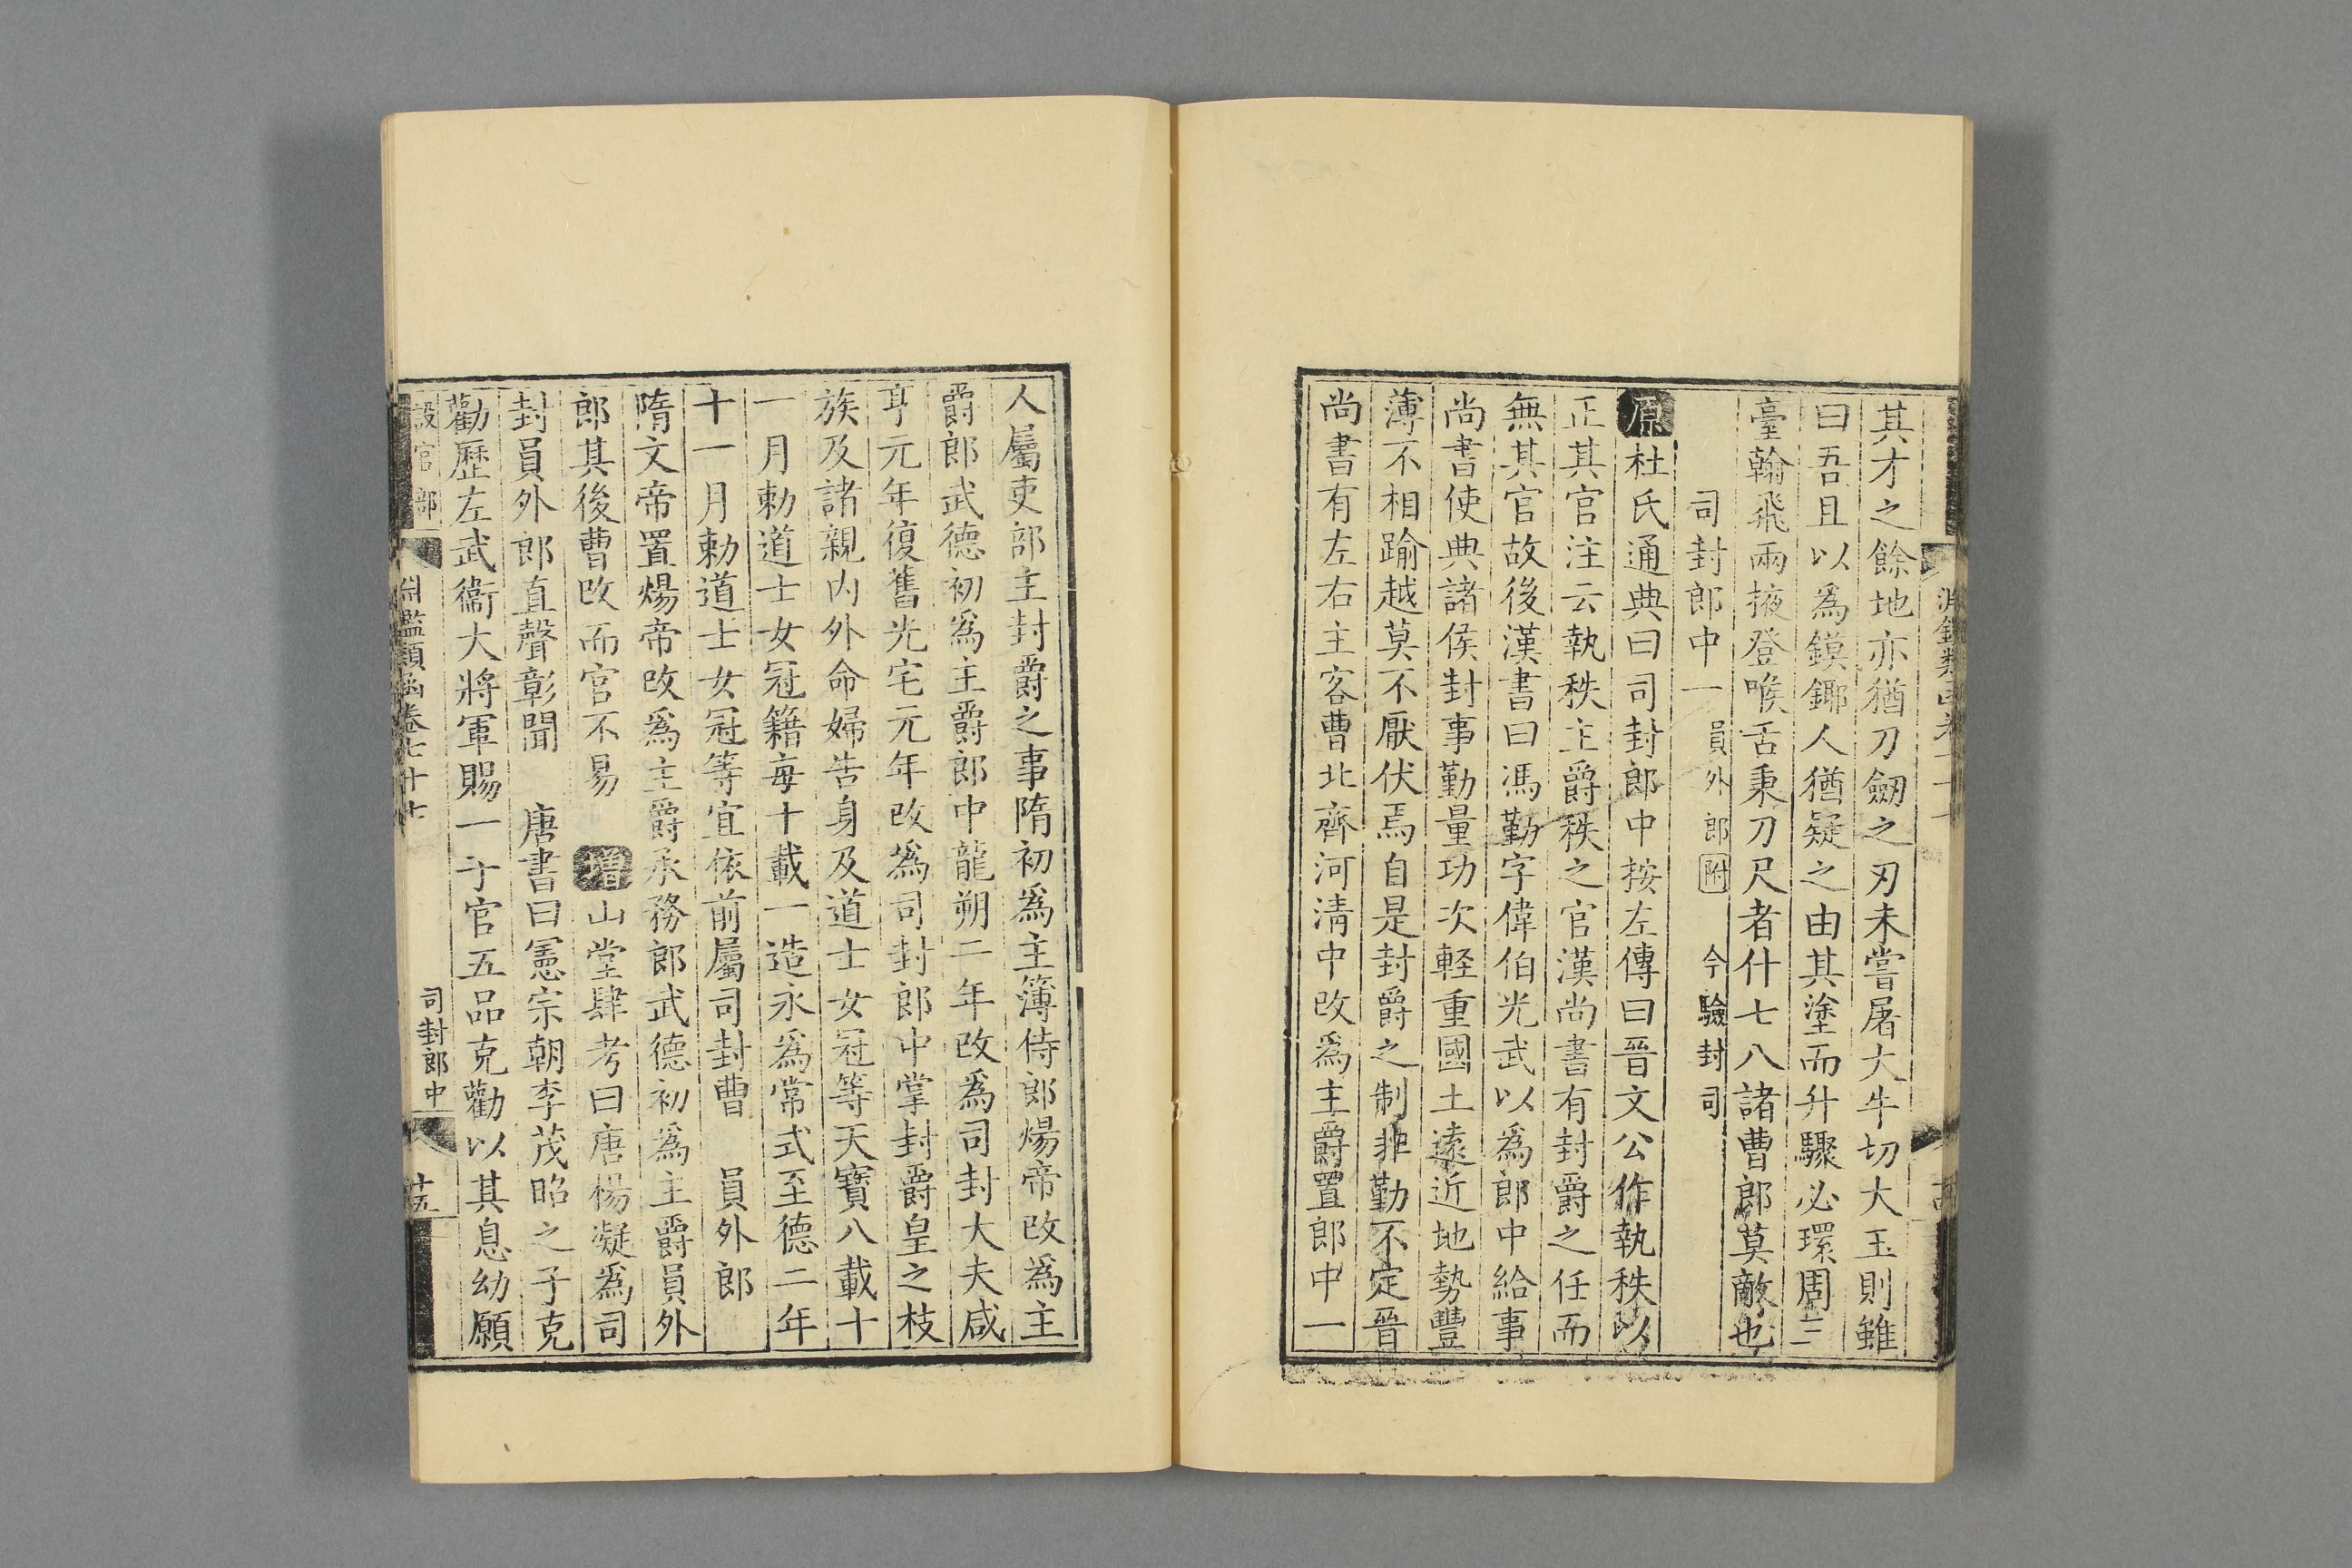 其才之餘地亦猶刀劒之刃未嘗屠大牛切大玉則雖
曰吾且以爲鏌鎁人猶疑之由其塗而升驟必環周三
臺翰飛兩掖登喉舌秉刀尺者什七八諸曹郎莫敵也
司封郎中一員外郎附 今驗封司
原杜氏通典曰司封郎中按左傳曰晉文公作執秩以
正其官注云執秩主爵秩之官漢尚書有封爵之任而
無其官故後漢書曰馮勤字偉伯光武以爲郎中給事
尚書使典諸侯封事勤量功次軽重國土遠近地勢豐
薄不相踰越莫不厭伏焉自是封爵之制非勤不定晉
尚書有左右主客曹北齊河清中改爲主爵置郎中一
人屬吏部主封爵之事隋初爲主簿侍郎煬帝改爲主
爵郎武德初爲主爵郎中龍朔二年改爲司封大夫咸
亨元年復舊光宅元年改爲司封郎中掌封爵皇之枝
族及諸親内外命婦告身及道士女冠等天寶八載十
一月勅道士女冠籍每十載一造永爲常式至德二年
十一月勅道士女冠等宜依前屬司封曹 員外郎
隋文帝置煬帝改爲主爵承務郎武德初爲主爵員外
郎其後曹改而官不易 增山堂肆考曰唐楊凝爲司
封員外郎直聲彰聞 唐書曰憲宗朝李茂昭之子克
勸歷左武衞大將軍賜一子官五品克勸以其息幼願
設官部 淵鑑類函卷七十七 司封郎中 十五